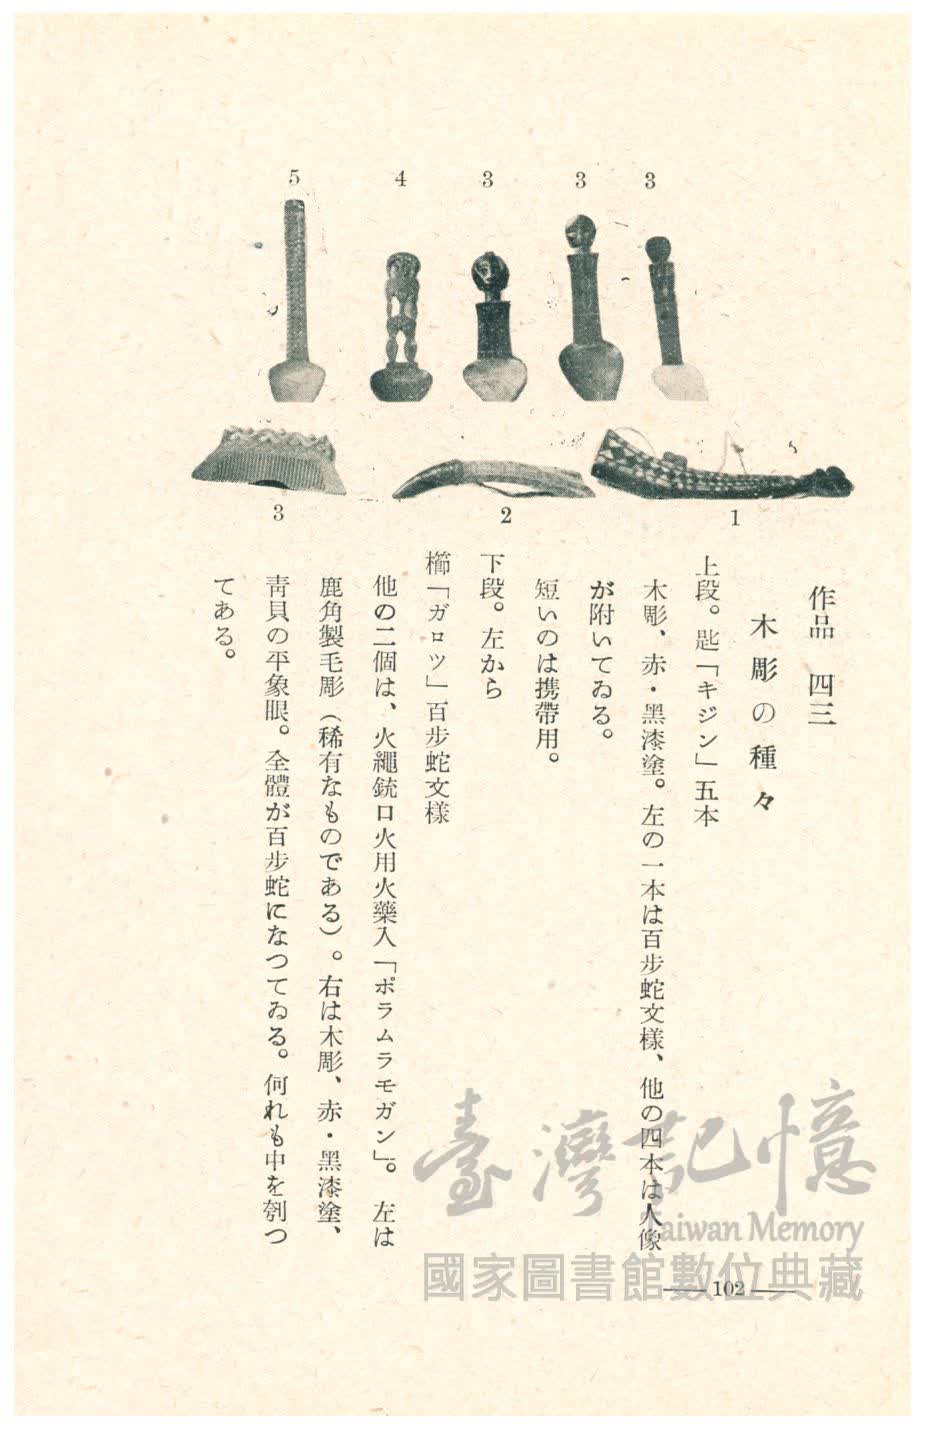 5 4 3 3 3
3 2 1
作品 四三
木彫の種々
上段。匙「キジン」五本
木彫、赤・黑漆塗。左の一本は百步蛇文樣、他の四本は人像
が附いてゐる。
短いのは携帶用。
下段。左から
櫛「ガロツ」百步蛇文樣
他の二個は、火繩銃口火用火藥入「ポラムラモガン」。左は
鹿角製毛彫（稀有なものである）。右は木彫、赤・黑漆塗、
靑貝の平象眼。全體が百步蛇になつてゐる。何れも中を刳つ
てある。
臺灣記憶
Taiwan Memory
國家圖書館數位典藏
— 102 —